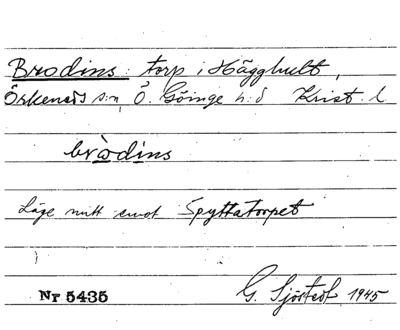 Brodins: torp i Hägghult,
Örkeneds s:n, Ö. Göinge h:d Krist. l.
bròdins
Låge mitt emot Spyttatorpet
Nr 5435 G. Sjöstedt 1945